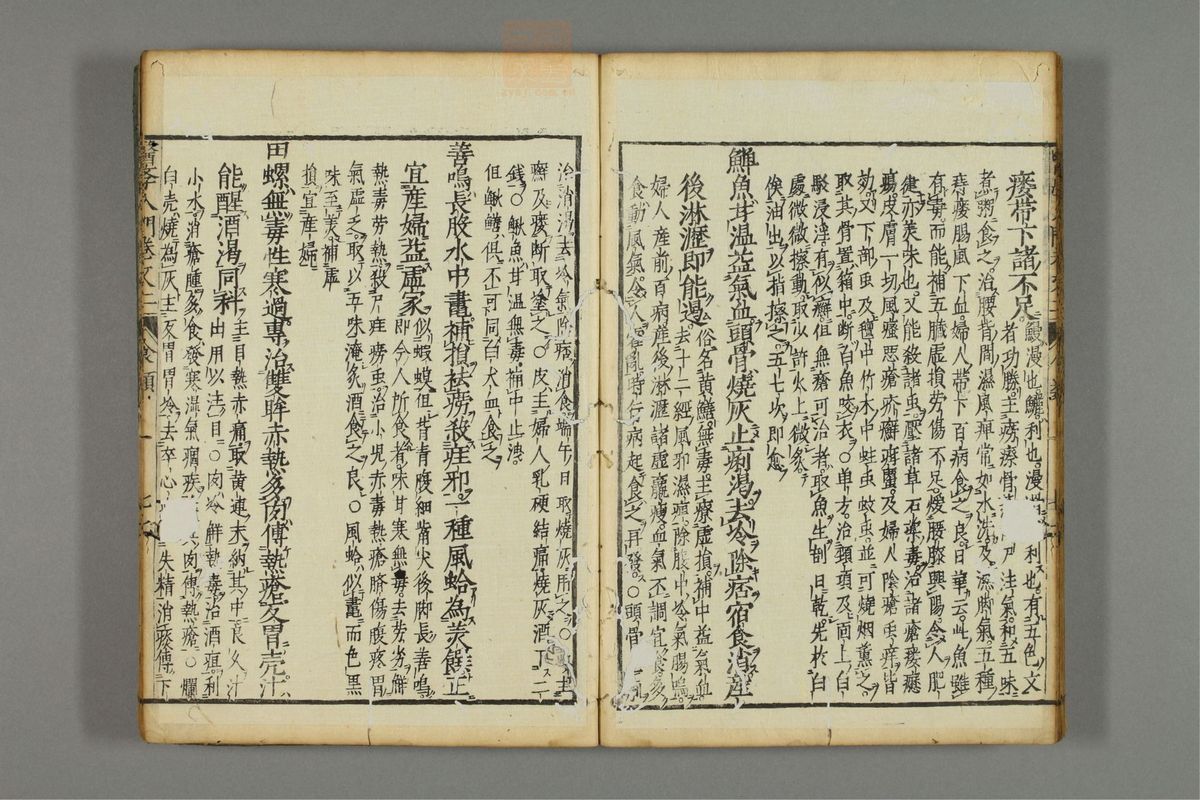 瘻帶下諸不足 鰻漫也鱺利也漫 利也有五色文
者功勝主癆瘵骨 尸疰氣和五味
煮粥食之治腰背間濕風痺常如水洗及濕脚氣五種
痔瘻腸風下血婦人帶下百病食之良日華云此魚雖
有毒而能補五臟虛損勞傷不足煖腰膝興陽令人肥
健亦美味也又能殺諸虫壓諸草石藥毒治諸瘡瘻癧
瘍皮膚一切風瘙惡瘡疥癬 及婦人陰瘡虫痒皆
効又下部虫及氊中竹木中蛀虫蚊虫並可燒烟薰之
取其骨置箱中斷白魚咬衣○單方治頸項及面上白
駁浸淫有似癬但無瘡可治者取魚生剖日乾先於白
處微微擦動取少許火上微炙
俟油出以指擦之五七次即愈
鱓魚甘溫益氣血頭骨燒灰止痢渴去冷除痞宿食消産
後淋瀝即能遏 俗名黄鱔無毒主療虛損補中益氣血
去十二經風邪濕痺除腹中冷氣腸鳴
婦人産前百病産後淋瀝諸虛羸瘦血氣不調宜食多
食動風氣令人霍亂時行病起食之再發○頭骨
治消渴去冷氣除痞消食端午日取燒灰用之○ 主
癬及瘻斷取塗之○皮主婦人乳硬結痛燒灰酒下二
錢○鰍魚甘溫無毒補中止洩
但鰍鱔俱不可同白犬血食之
善鳴長股水中鼃補損祛癆殺疰邪一種風蛤為羮饌正
宜産婦益虛家 似蝦蟆但背青腹細嘴尖後脚長善鳴
即今人所食者味甘寒無毒去劳劣解
熱毒劳熱殺尸疰癆虫治小兒赤毒熱瘡臍傷腹疼胃
氣虛乏取以五味淹炙酒食之良○風蛤似鼃而色黒
味至美補虛
損宜産婦
田螺無毒性寒過專治雙眸赤熱多肉傅熱瘡反胃壳汁
能醒酒渴同科 主目熱赤痛取黄連末納其中良久汁
出用以注目○肉冷解熱毒治酒疸利
小水消瘡腫多食發寒濕氣痼疾 肉傅熱瘡○爛
白壳燒為灰主反胃胃冷去卒心 失精消瘰傅下